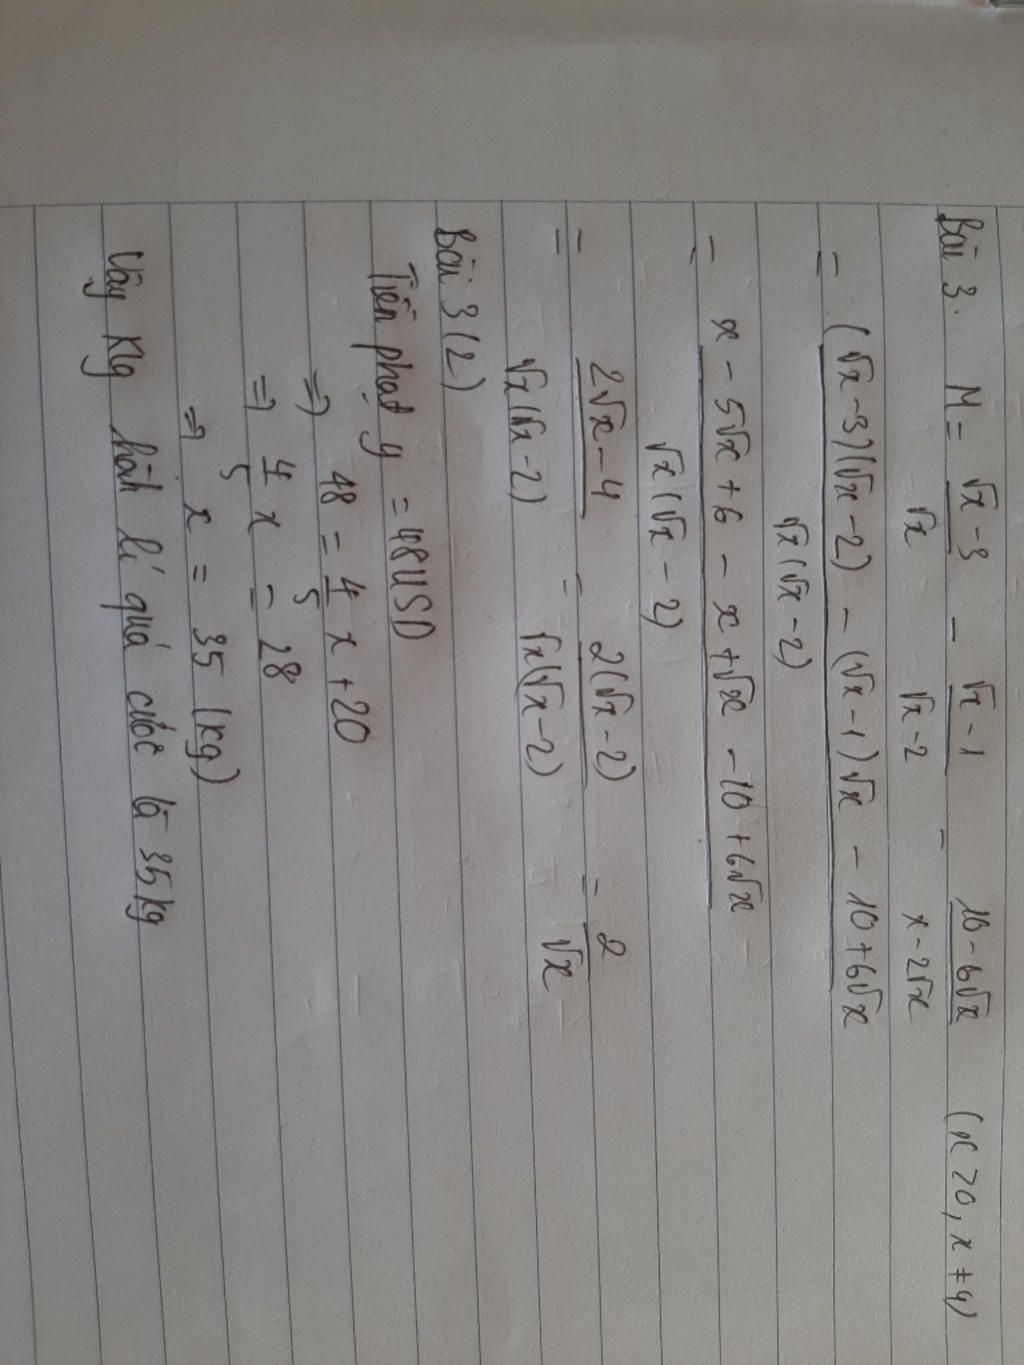 Bài 3. M = (√x - 3)/√x - (√x - 1)/(√x - 2) - (10 - 6√x)/(x - 2√x) (x > 0, x ≠ 4)
= ((√x - 3)(√x - 2) - (√x - 1)√x - 10 + 6√x)/(√x(√x - 2))
= (x - 5√x + 6 - x + √x - 10 + 6√x)/(√x(√x - 2))
= (2√x - 4)/(√x(√x - 2)) = 2(√x - 2)/(√x(√x - 2)) = 2/√x
Bài 3 (2)
Tiền phạt y = 48USD
⇒ 48 = 4/5 x + 20
⇒ 4/5 x = 28
⇒ x = 35 (kg)
Vậy Kg hành lí quá cước là 35kg